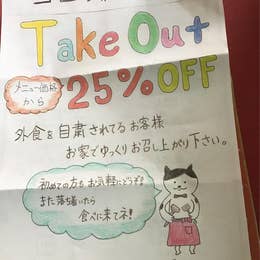 Take Out
メニュー価格
から
25% OFF
外食を自粛されてるお客様
お家でゆっくりお召し上がり下さい。
初めての方もお気軽にどうぞ!
また落ち着いたら
食べに来てネ!